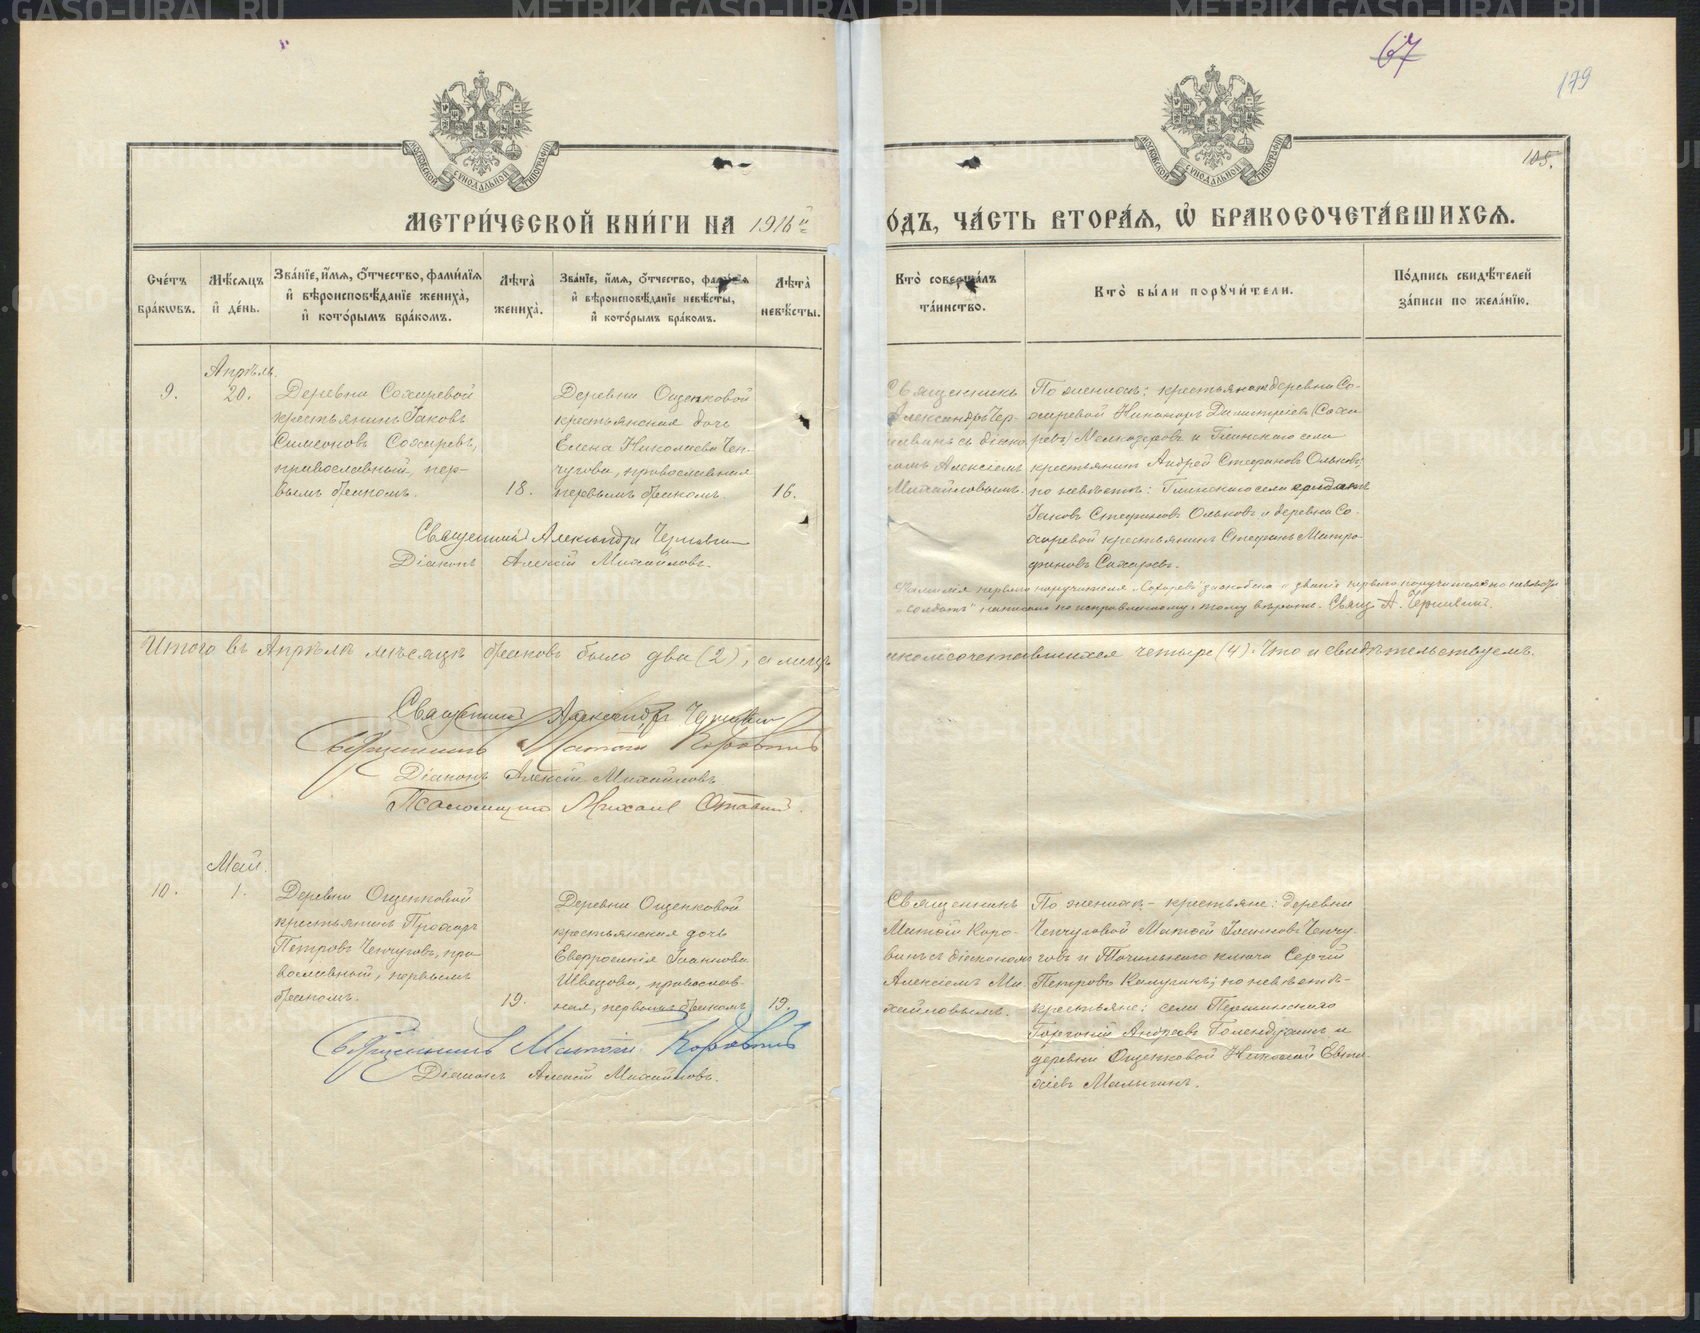 67
179
105.
МЕТРИ́ЧЕСКОЙ КНИ́ГИ НА 1916й
ОДЪ, ЧА́СТЬ ВТОРА́Я, Ѡ҆ БРАКОСОЧЕТА́ВШИХСЯ.
Сче́тъ бра́кѡвъ.
Мѣ́сяцъ и҆ де́нь.
Зва́нїе, и҆́мя, ѻ҆́тчество, фами́лїя
и҆ вѣроисповѣ́данїе жениха̀,
и҆ кото́рымъ бра́комъ.
Лѣта̀ жениха̀.
Зва́нїе, и҆́мя, ѻ҆́тчество, фами́лїя
и҆ вѣроисповѣ́данїе невѣ́сты,
и҆ кото́рымъ бра́комъ.
Лѣта̀ невѣ́сты.
Кто̀ соверша́лъ та́инство.
Кто̀ бы́ли порꙋчи́тели.
По́дпись свидѣ́телей
за́писи по жела́нїю.
9.
Апрѣль.
20.
Деревни Сохаревой
крестьянинъ Іаковъ
Симеоновъ Сохаревъ,
православный, пер-
вымъ бракомъ.
18.
Деревни Ощепковой
крестьянская дочь
Елена Николаева Чеп-
чугова, православная
первымъ бракомъ.
16.
Священникъ
Александръ Чер-
съ діако
Алексіемъ
Михайловымъ.
По женихѣ: крестьяне деревни Со-
харевой Никаноръ Димитріевъ (Соха
ревъ) и Глинскаго села
крестьянинъ Андрей Стефановъ Ольковъ;
по невѣстѣ: Глинскаго села солдатъ
Іаковъ Стефановъ Ольковъ и деревни Со-
харевой крестьянинъ Стефанъ Митро-
фановъ Сохаревъ.
Священникъ Александръ
Діаконъ Алексій Михайловъ.
Фамилія перваго поручителя „Сохаревъ" зачеркнута и званіе перваго поручителя по невѣстѣ
„солдатъ" написано по исправленному, тому вѣрить. Свящ. А.
Итого въ Апрѣлѣ мѣсяцѣ браковъ было два (2), а лицъ
бракомсочетавшихся четыре (4). Что и свидѣтельствуемъ.
Священникъ Александръ
Священникъ Матѳій Коровинъ
Діаконъ Алексій Михайловъ
Псаломщикъ Михаилъ
10.
Май.
1.
Деревни Ощепковой
крестьянинъ Прохоръ
Петровъ Чепчуговъ, пра-
вославный, первымъ
бракомъ.
19.
Деревни Ощепковой
крестьянская дочь
Евфросинія Іоаннова
Швецова, православ-
ная, первымъ бракомъ
19.
Священникъ
Матѳій Коро-
винъ съ діакономъ
Алексіемъ Ми-
хайловымъ.
По женихѣ - крестьяне: деревни
Чепчуговой Матѳей Чепчу-
говъ и Точильнаго ключа Сергій
Петровъ Калугинъ; по невѣстѣ -
крестьяне: села Першинскаго
Горгоній Андреевъ Голендухинъ и
деревни Ощепковой Николай Евти-
хіевъ Малыгинъ.
Священникъ Матѳій Коровинъ
Діаконъ Алексій Михайловъ.
METRIKI.GASO-URAL.RU